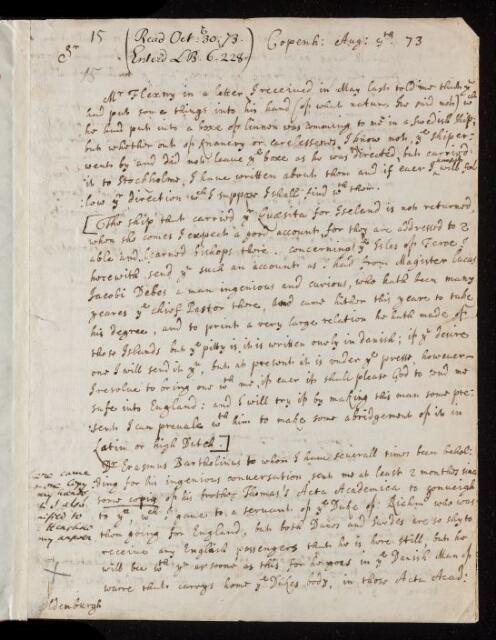 15
(Read Oct: 30: 73.
Entred LB. 6. 228.)
Copenh: Aug: 73
Mr Flexny in a letter I received in May last told me that
had put some things into his hand (of what nature he said not)
he had put into a boxe of linnen was coming to me in a Swedish ship;
but whether out of knavery or carelessenes I know not, ye skipper
went by and did not leave ye boxe as he was directed, but carried
it to Stockholme, I have written about them and if ever I
low yr direction wch I suppose I shall find wth them.
[The ship that carried yr Quæsita for Iseland is not returned
when she comes I expect a good account for they are addressed to 2
able and learned Bishops there. concerning ye Isles of Feroe I
herewith send yu such an account as I had from Magister Lucas
Jacobi Debes a man ingenious and curious, who hath been many
yeares ye chief Pastor there, and came hither this yeare to take
his degree, and to print a very large relation he hath made of
those Islands but ye pitty is it is written onely in danish; if yu desire
one I will send it yu, but at present it is under ye presse, however
I resolve to bring one wth me, if ever it shall please God to send me
safe into England: and I will try if by making this man some pre-
sent I can prevale wth him to make some abridgement of it in
Latin or high Dutch.]
Dr Erasmus Bartholinus to whom I have severall times been behol-
ding for his ingenious conversation, sent me at least 2 months since
some copies of his brother Thomas's Acta Academica to conveigh
to yu, wch I gave to a servant of ye Duke of Richm: who was
then going for England, but both Danes and Swedes are so shy to
receive any English passengers that he is here still, but he
will bee wth yu as soone as this, for he goes in ye Danish Man of
warre that carrys home ye Dukes body, in those Acta Acad:
came
my hands
my answer
Oldenburgh